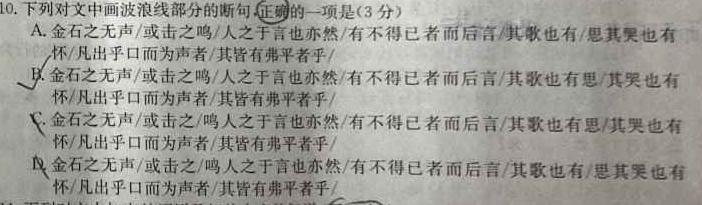 10.下列对文中画波浪线部分的断句,正确的一项是(3分)
A.金石之无声/或击之鸣/人之于言也亦然/有不得已者而后言/其歌也有/思其哭也有
怀/凡出乎口而为声者/其皆有弗平者乎/
B.金石之无声/或击之鸣/人之于言也亦然/有不得已者而后言/其歌也有思/其哭也有
怀/凡出乎口而为声者/其皆有弗平者乎/
C.金石之无声/或击之/鸣人之于言也亦然/有不得已者而后言/其歌也有思/其哭也有
怀/凡出乎口而为声者/其皆有弗平者乎/
D.金石之无声/或击之/鸣人之于言也亦然/有不得已者而后言/其歌也有/思其哭也有
怀/凡出乎口而为声者/其皆有弗平者乎/